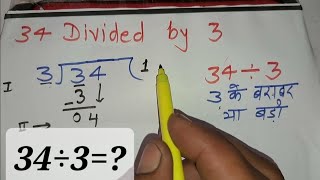 34 Divided by 3
I 3 34 1
34÷3
-3↓
04
II →
3 के बराबर
या बड़ा
34÷3=?